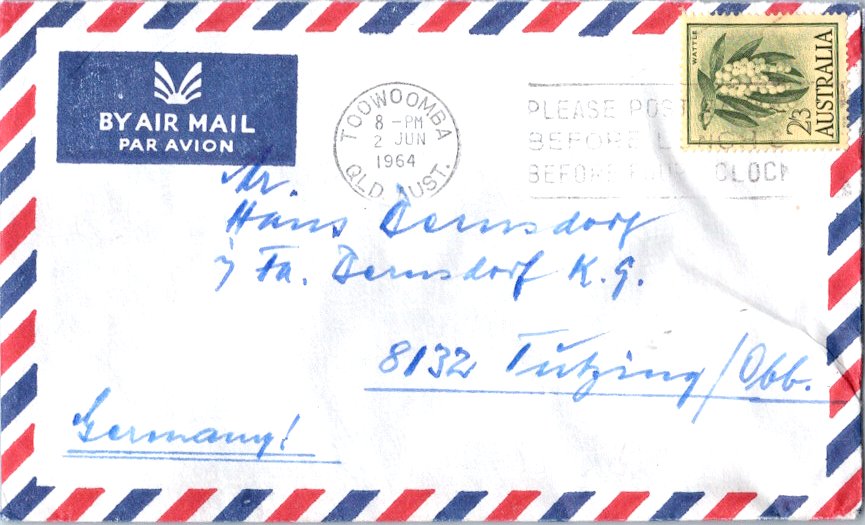 BY AIR MAIL
PAR AVION
TOOWOOMBA
8 - PM
2 JUN
1964
QLD. AUST.
PLEASE POST
BEFORE
BEFORE FOUR O'CLOCK
WATTLE
2/3
AUSTRALIA
Mr.
Hans Bernsdorf
Fa. Bernsdorf K. G.
8132 Tutzing/Obb.
Germany!